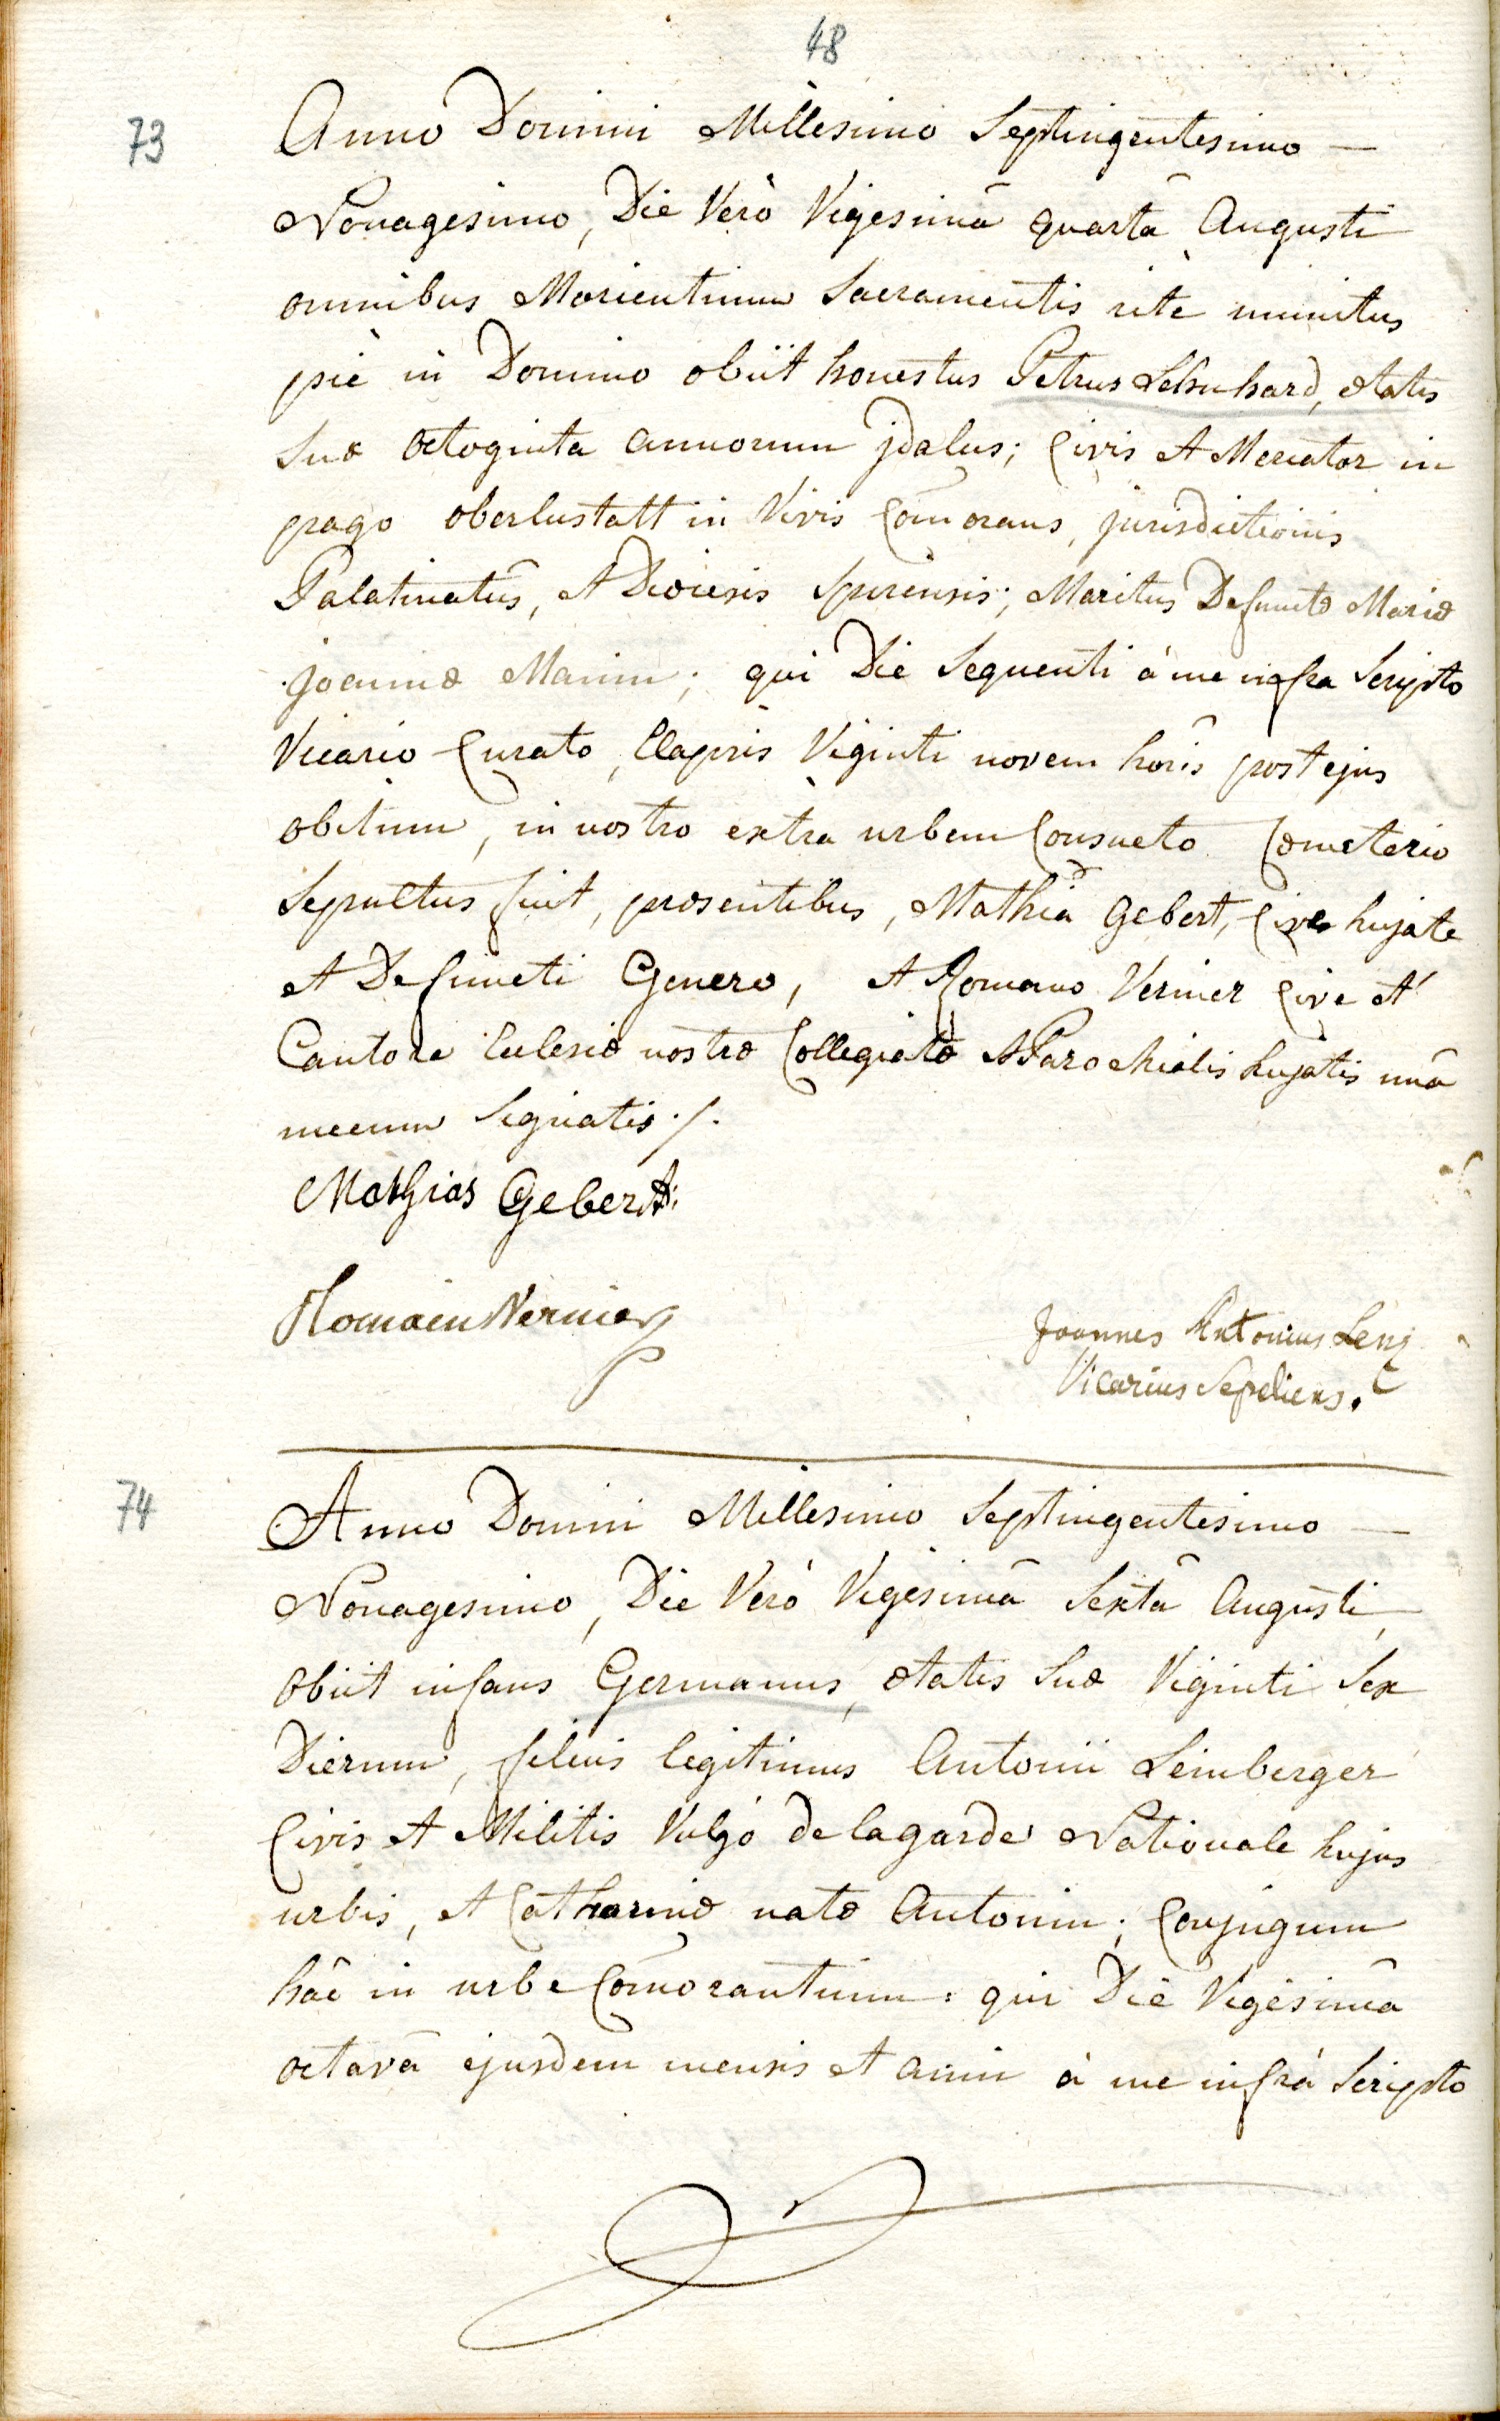 48
73
Anno Domini Millesimo Septingentesimo —
Nonagesimo, Die Verò Vigesimâ quartâ Augusti
omnibus Morientium Sacramentis ritè munitus
piè in Domino obiit honestus Petrus Lehnhard, ætatis
suæ octoginta annorum jdalus; Civis et Mercator in
pago oberlustatt in Vivis Com̃orans, jurisdictionis
Palatinatûs, et Diœcesis Spirensis; Maritus Defunctæ Mariæ
joannæ Manin; qui Die Sequenti à me infra Scripto
Vicario Curato, Elapsis Viginti novem horis post ejus
obitum, in nostro extra urbem Consueto Cœmeterio
Sepultus fuit, præsentibus, Mathiâ Gebert, Cive hujate
et Defuncti Genero, et Romano Vernier Cive et
Cantore Eclesiæ nostræ Collegiatæ et Parochialis hujatis unâ
mecum Signatis ./.
Mathias Gebert
Romain Vernier
Joannes Antonius Lenz
Vicarius Sepeliens.
74
Anno Domini Millesimo Septingentesimo —
Nonagesimo, Die Verò Vigesimâ Sextâ Augusti,
obiit infans Germanus, ætatis Suæ Viginti Sex
Dierum, filius legitimus Antonii Leinberger
Civis et Militis Vulgò de la garde Nationale hujus
urbis, et Catharinæ natæ Antonin; Conjugum
hâc in urbe Com̃orantium: qui Die Vigesimâ
octavâ ejusdem mensis et anni à me infrà Scripto